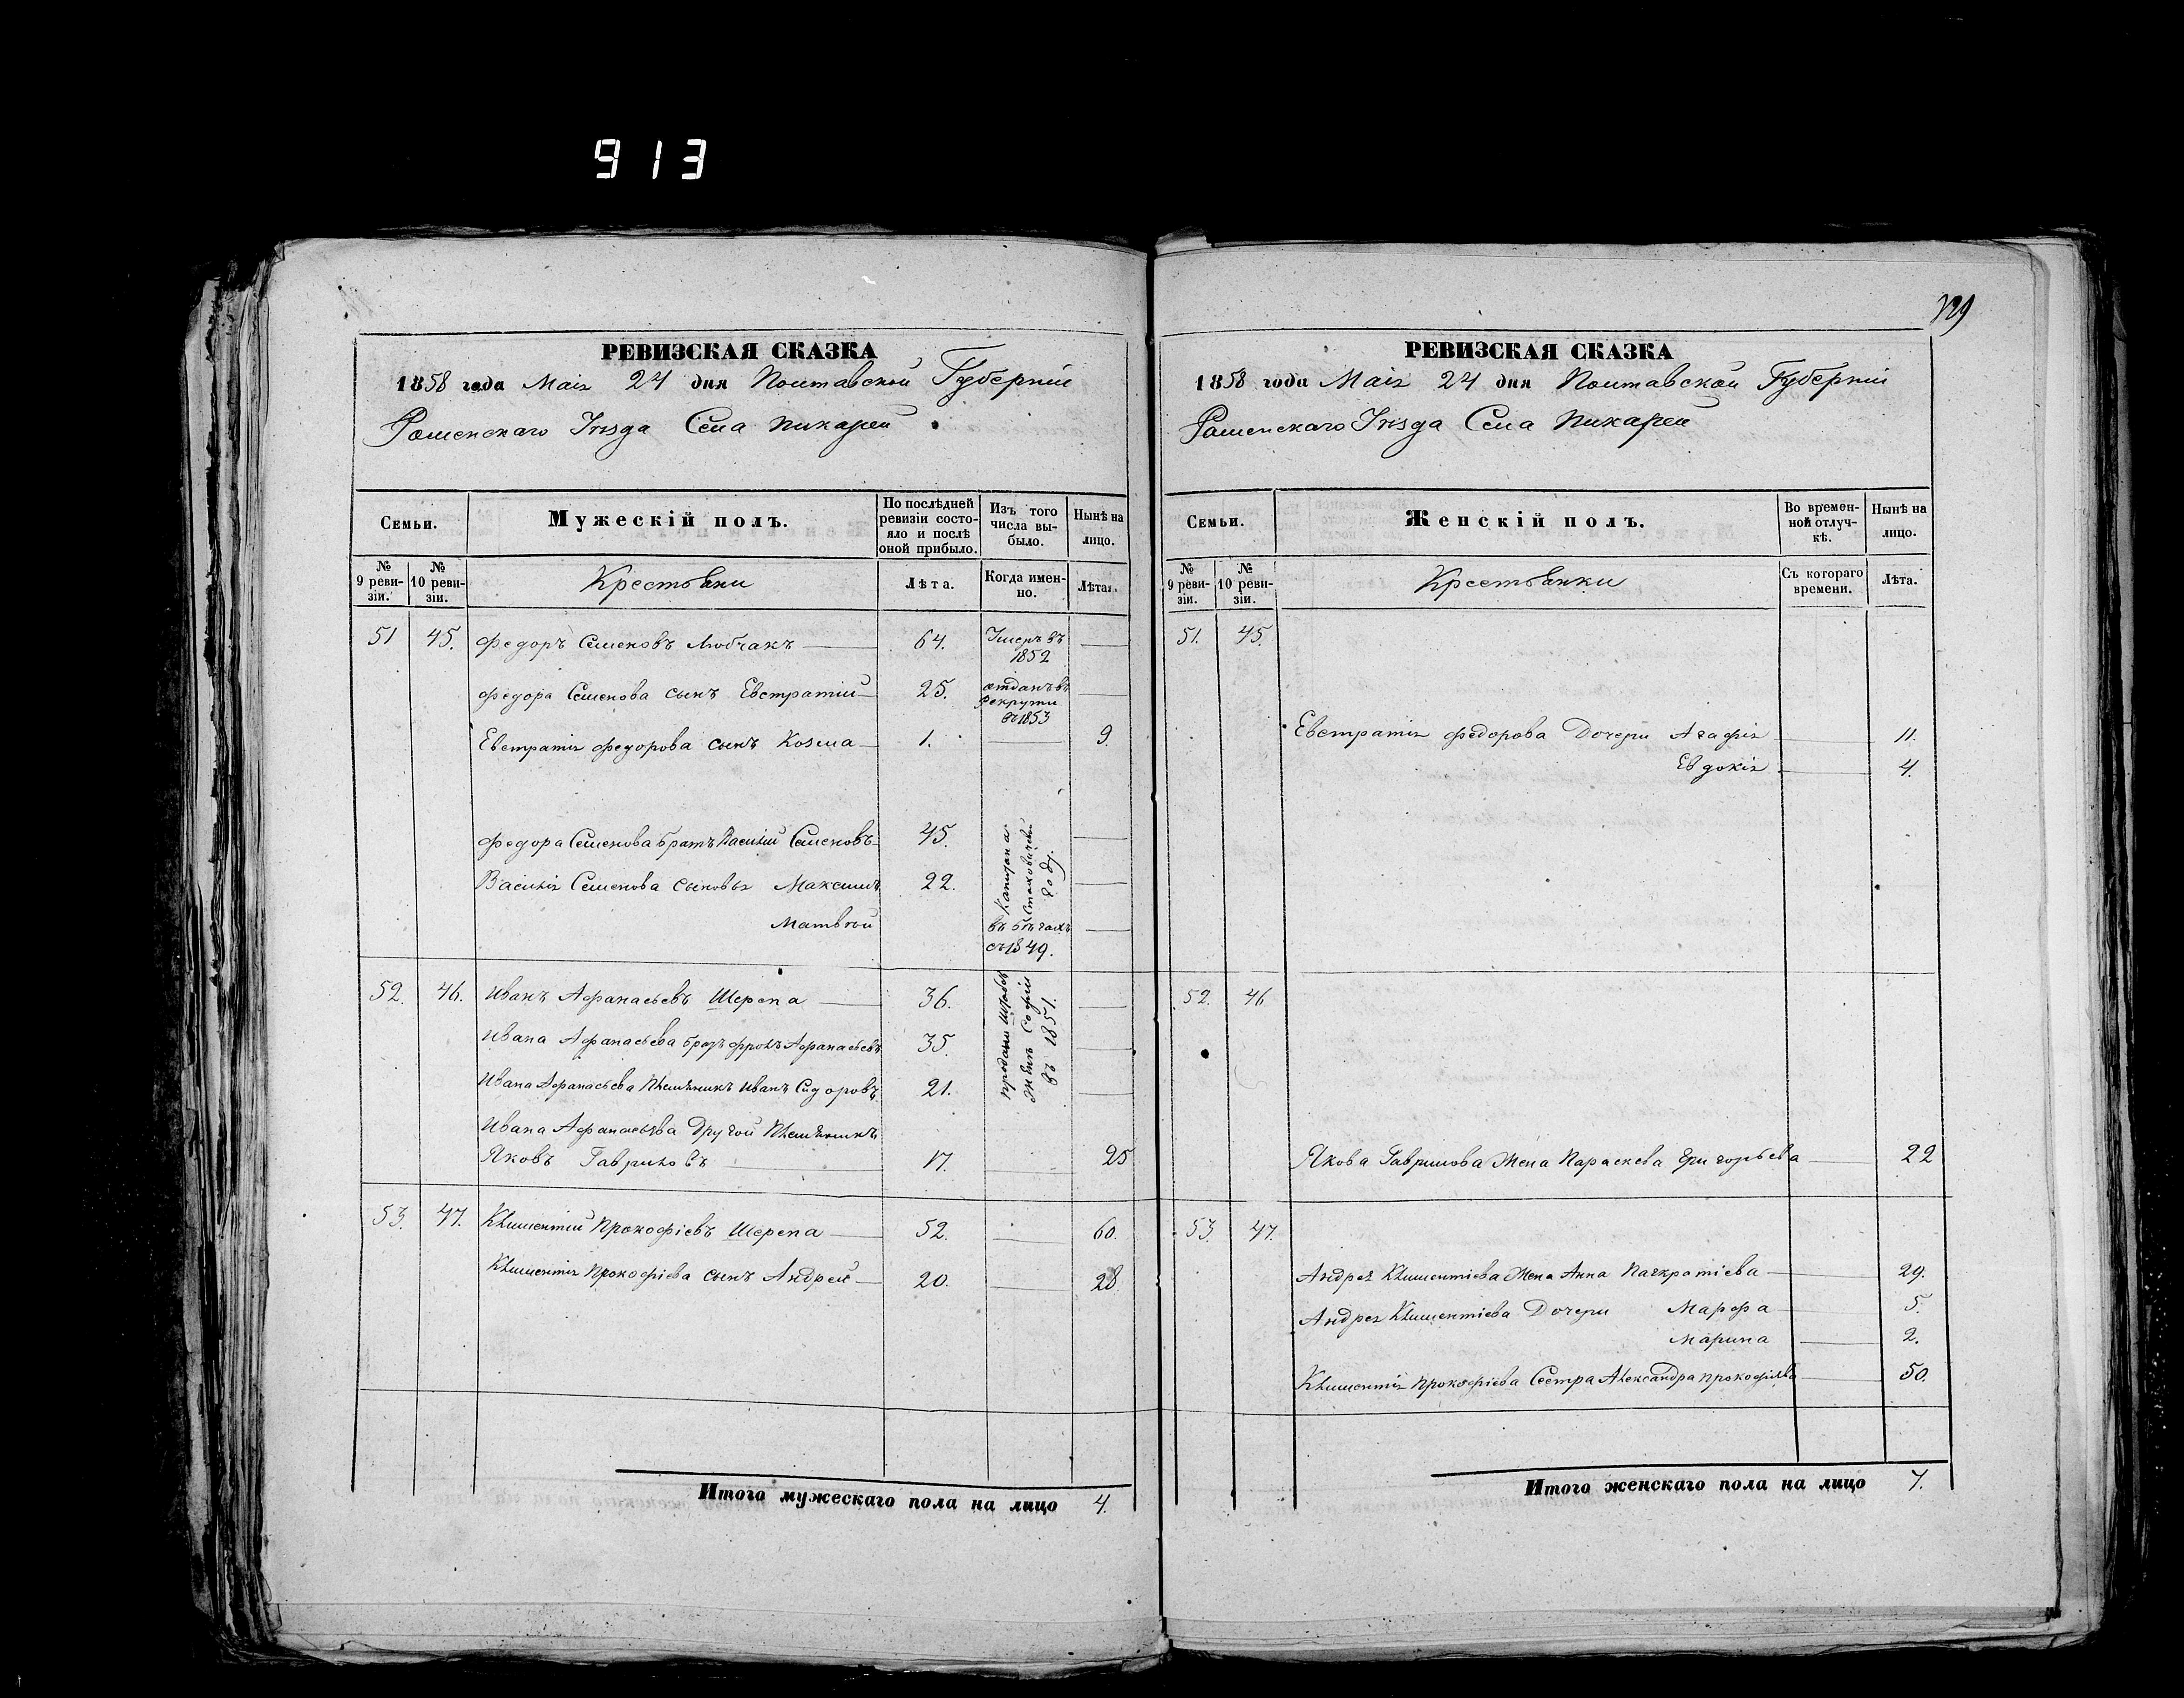 913
129
РЕВИЗСКАЯ СКАЗКА
1858 года Маія 24 дня Полтавской Губерніи
Роменскаго Уѣзда Села Пикарей
Семьи.
Мужескій полъ.
По послѣдней ревизіи состояло и послѣ оной прибыло.
Изъ того числа выбыло.
Нынѣ на лицо.
№ 9 ревизіи.
№ 10 ревизіи.
Крестьяни
Лѣта.
Когда именно.
Лѣта.
51 45. Федоръ Семеновъ Любчакъ 64. Умеръ въ 1852
Федора Семенова сынъ Евстратій 25. отданъ въ рекруты въ 1853
Евстратія Федорова сынъ Козма 1. 9.
Федора Семенова братъ Василій Семеновъ 45.
Василія Семенова сыновья Максимъ 22.
Матвѣй
въ бѣгахъ
съ 1849.
52. 46. Иванъ Афанасьевъ Шерепа 36.
Ивана Афанасьева братъ Фролъ Афанасьевъ 35.
Ивана Афанасьева Племѣникъ Иванъ Сидоровъ 21.
Женѣ Софіи
въ 1851.
Ивана Афанасьева другой Племѣникъ
Яковъ Гавриловъ 17. 25
53. 47. Климентій Прокофіевъ Шерепа 52. 60.
Климентія Прокофіева сынъ Андрей 20. 28
Итого мужескаго пола на лицо 4.
РЕВИЗСКАЯ СКАЗКА
1858 года Маія 24 дня Полтавской Губерніи
Роменскаго Уѣзда Села Пикарей
Семьи.
Женскій полъ.
Во временной отлучкѣ.
Нынѣ на лицо.
№ 9 ревизіи.
№ 10 ревизіи.
Крестьянки
Съ котораго времени.
Лѣта.
51. 45.
Евстратія Федорова Дочери Агафія 11.
Евдокія 4.
52. 46
Якова Гаврилова Жена Параскева Григорьева 22
53. 47.
Андрея Климентіева Жена Анна Панкратіева 29.
Андрея Климентіева Дочери Марфа 5.
Марина 2.
Климентія Прокофіева Сестра Александра Прокофіева 50.
Итого женскаго пола на лицо 7.